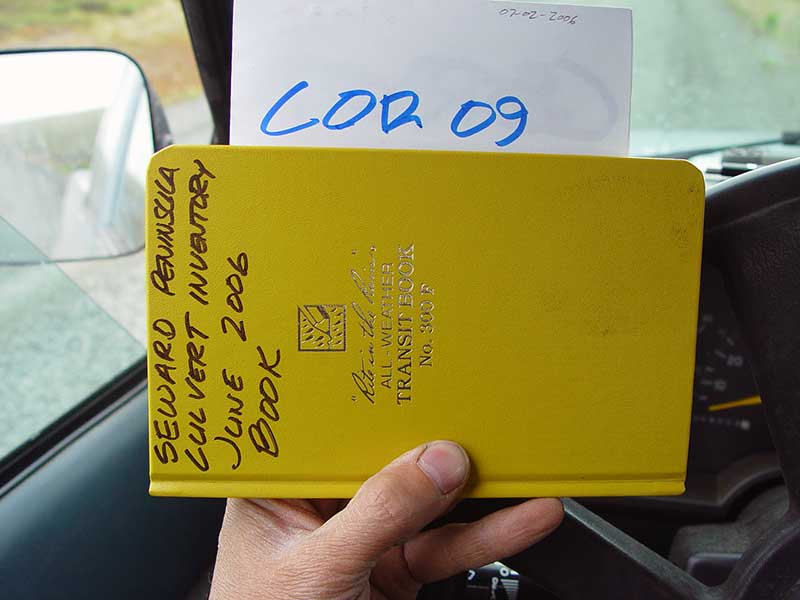 COR 09
SEWARD PENINSULA
CULVERT INVENTORY
JUNE 2006
BOOK
"Rite in the Rain"
ALL-WEATHER
TRANSIT BOOK
No. 300 F
20
10